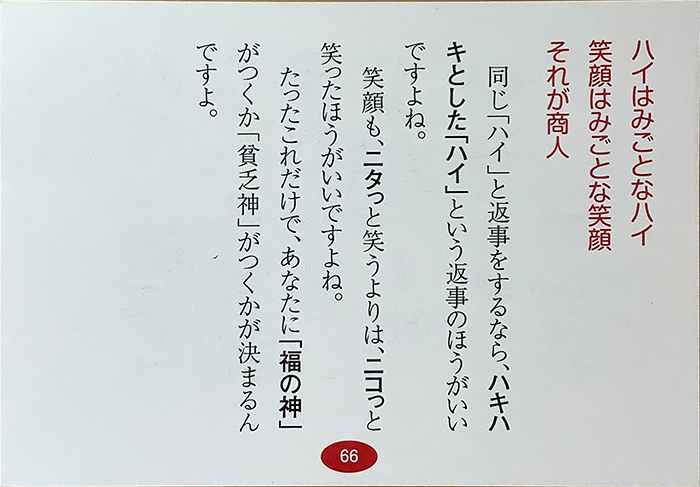 ハイはみごとなハイ
笑顔はみごとな笑顔
それが商人
同じ「ハイ」と返事をするなら、ハキハ
キとした「ハイ」という返事のほうがいい
ですよね。
笑顔も、ニタっと笑うよりは、ニコっと
笑ったほうがいいですよね。
たったこれだけで、あなたに「福の神」
がつくか「貧乏神」がつくかが決まるん
ですよ。
66